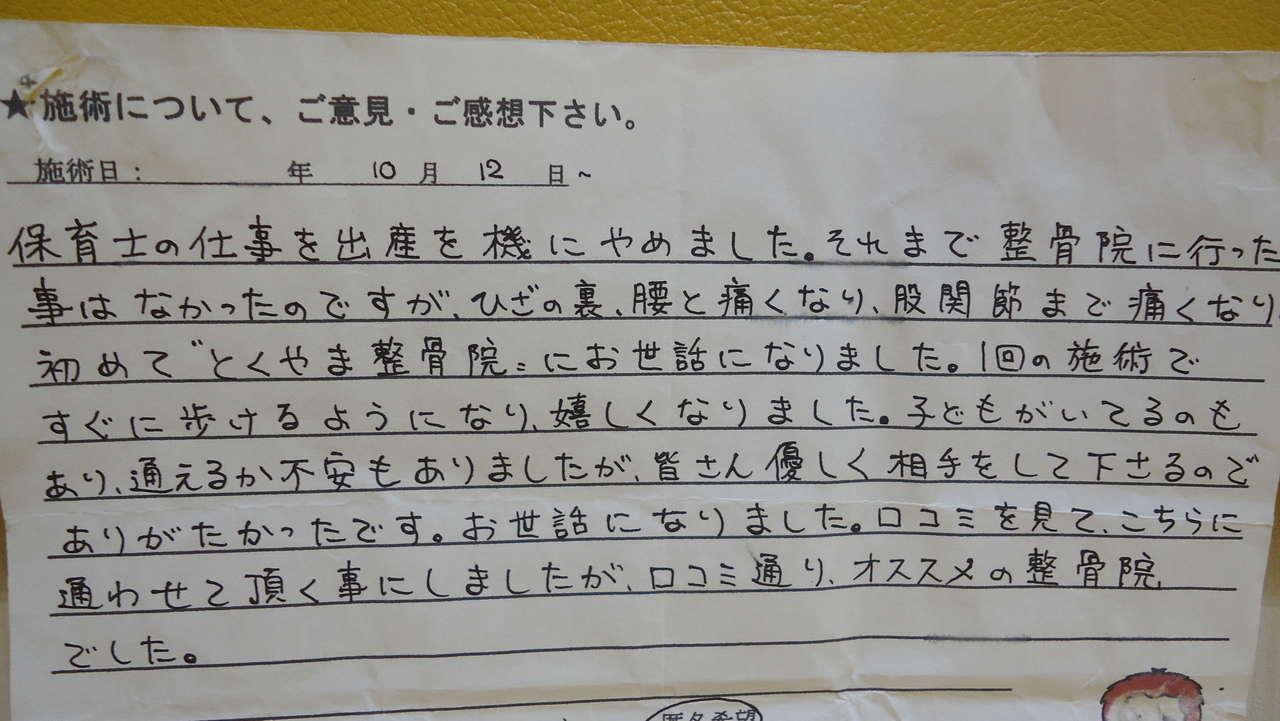 ★施術について、ご意見・ご感想下さい。
施術日： 年 10 月 12 日 ~
保育士の仕事を出産を機にやめました。それまで整骨院に行った
事はなかったのですが、ひざの裏、腰と痛くなり、股関節まで痛くなり、
初めて"とくやま整骨院"にお世話になりました。1回の施術で
すぐに歩けるようになり、嬉しくなりました。子どもがいてるのも
あり、通えるか不安もありましたが、皆さん優しく相手をして下さるので
ありがたかったです。お世話になりました。口コミを見て、こちらに
通わせて頂く事にしましたが、口コミ通り、オススメの整骨院
でした。
匿名希望